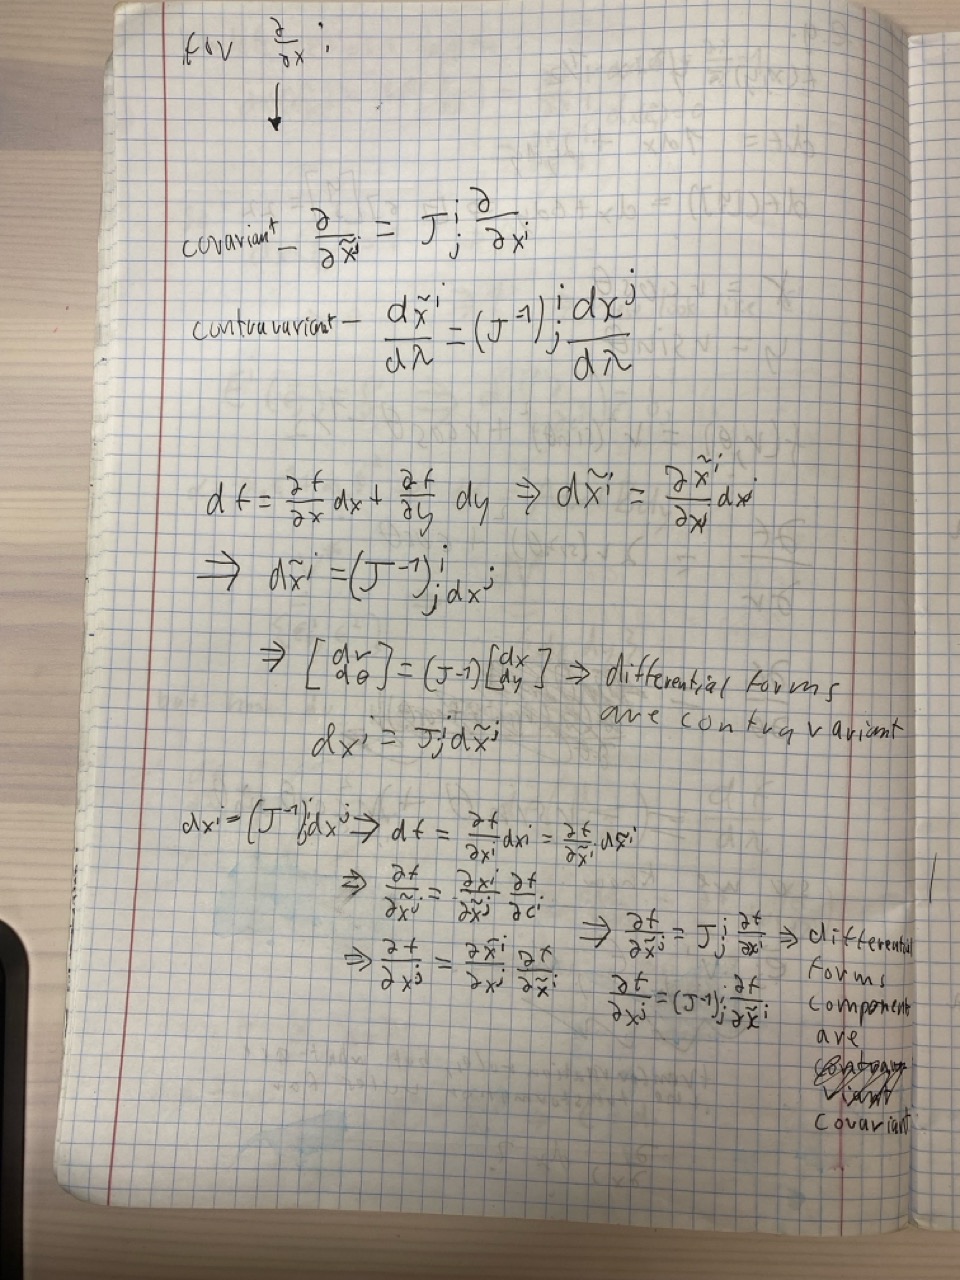 for ∂/∂x^i
↓
covariant – ∂/∂x̃^j = J^i_j ∂/∂x^i
contravariant – dx̃^i/dλ = (J^-1)^i_j dx^j/dλ
df = ∂f/∂x dx + ∂f/∂y dy ⇒ dx̃^i = ∂x̃^i/∂x^j dx^j
⇒ dx̃^i = (J^-1)^i_j dx^j
⇒ [dr dθ] = (J-1) [dx dy] ⇒ differential forms
are contravariant
dx^i = J^i_j dx̃^j
dx^i = (J^-1)^i_j dx^j ⇒ df = ∂f/∂x^i dx^i = ∂f/∂x̃^i dx̃^i
⇒ ∂f/∂x̃^j = ∂x^i/∂x̃^j ∂f/∂c^i
⇒ ∂f/∂x̃^j = J^i_j ∂f/∂x^i ⇒ differential
forms
component
are
covariant
⇒ ∂f/∂x^j = ∂x̃^i/∂x^j ∂f/∂x̃^i
∂f/∂x^j = (J-1)^i_j ∂f/∂x̃^i